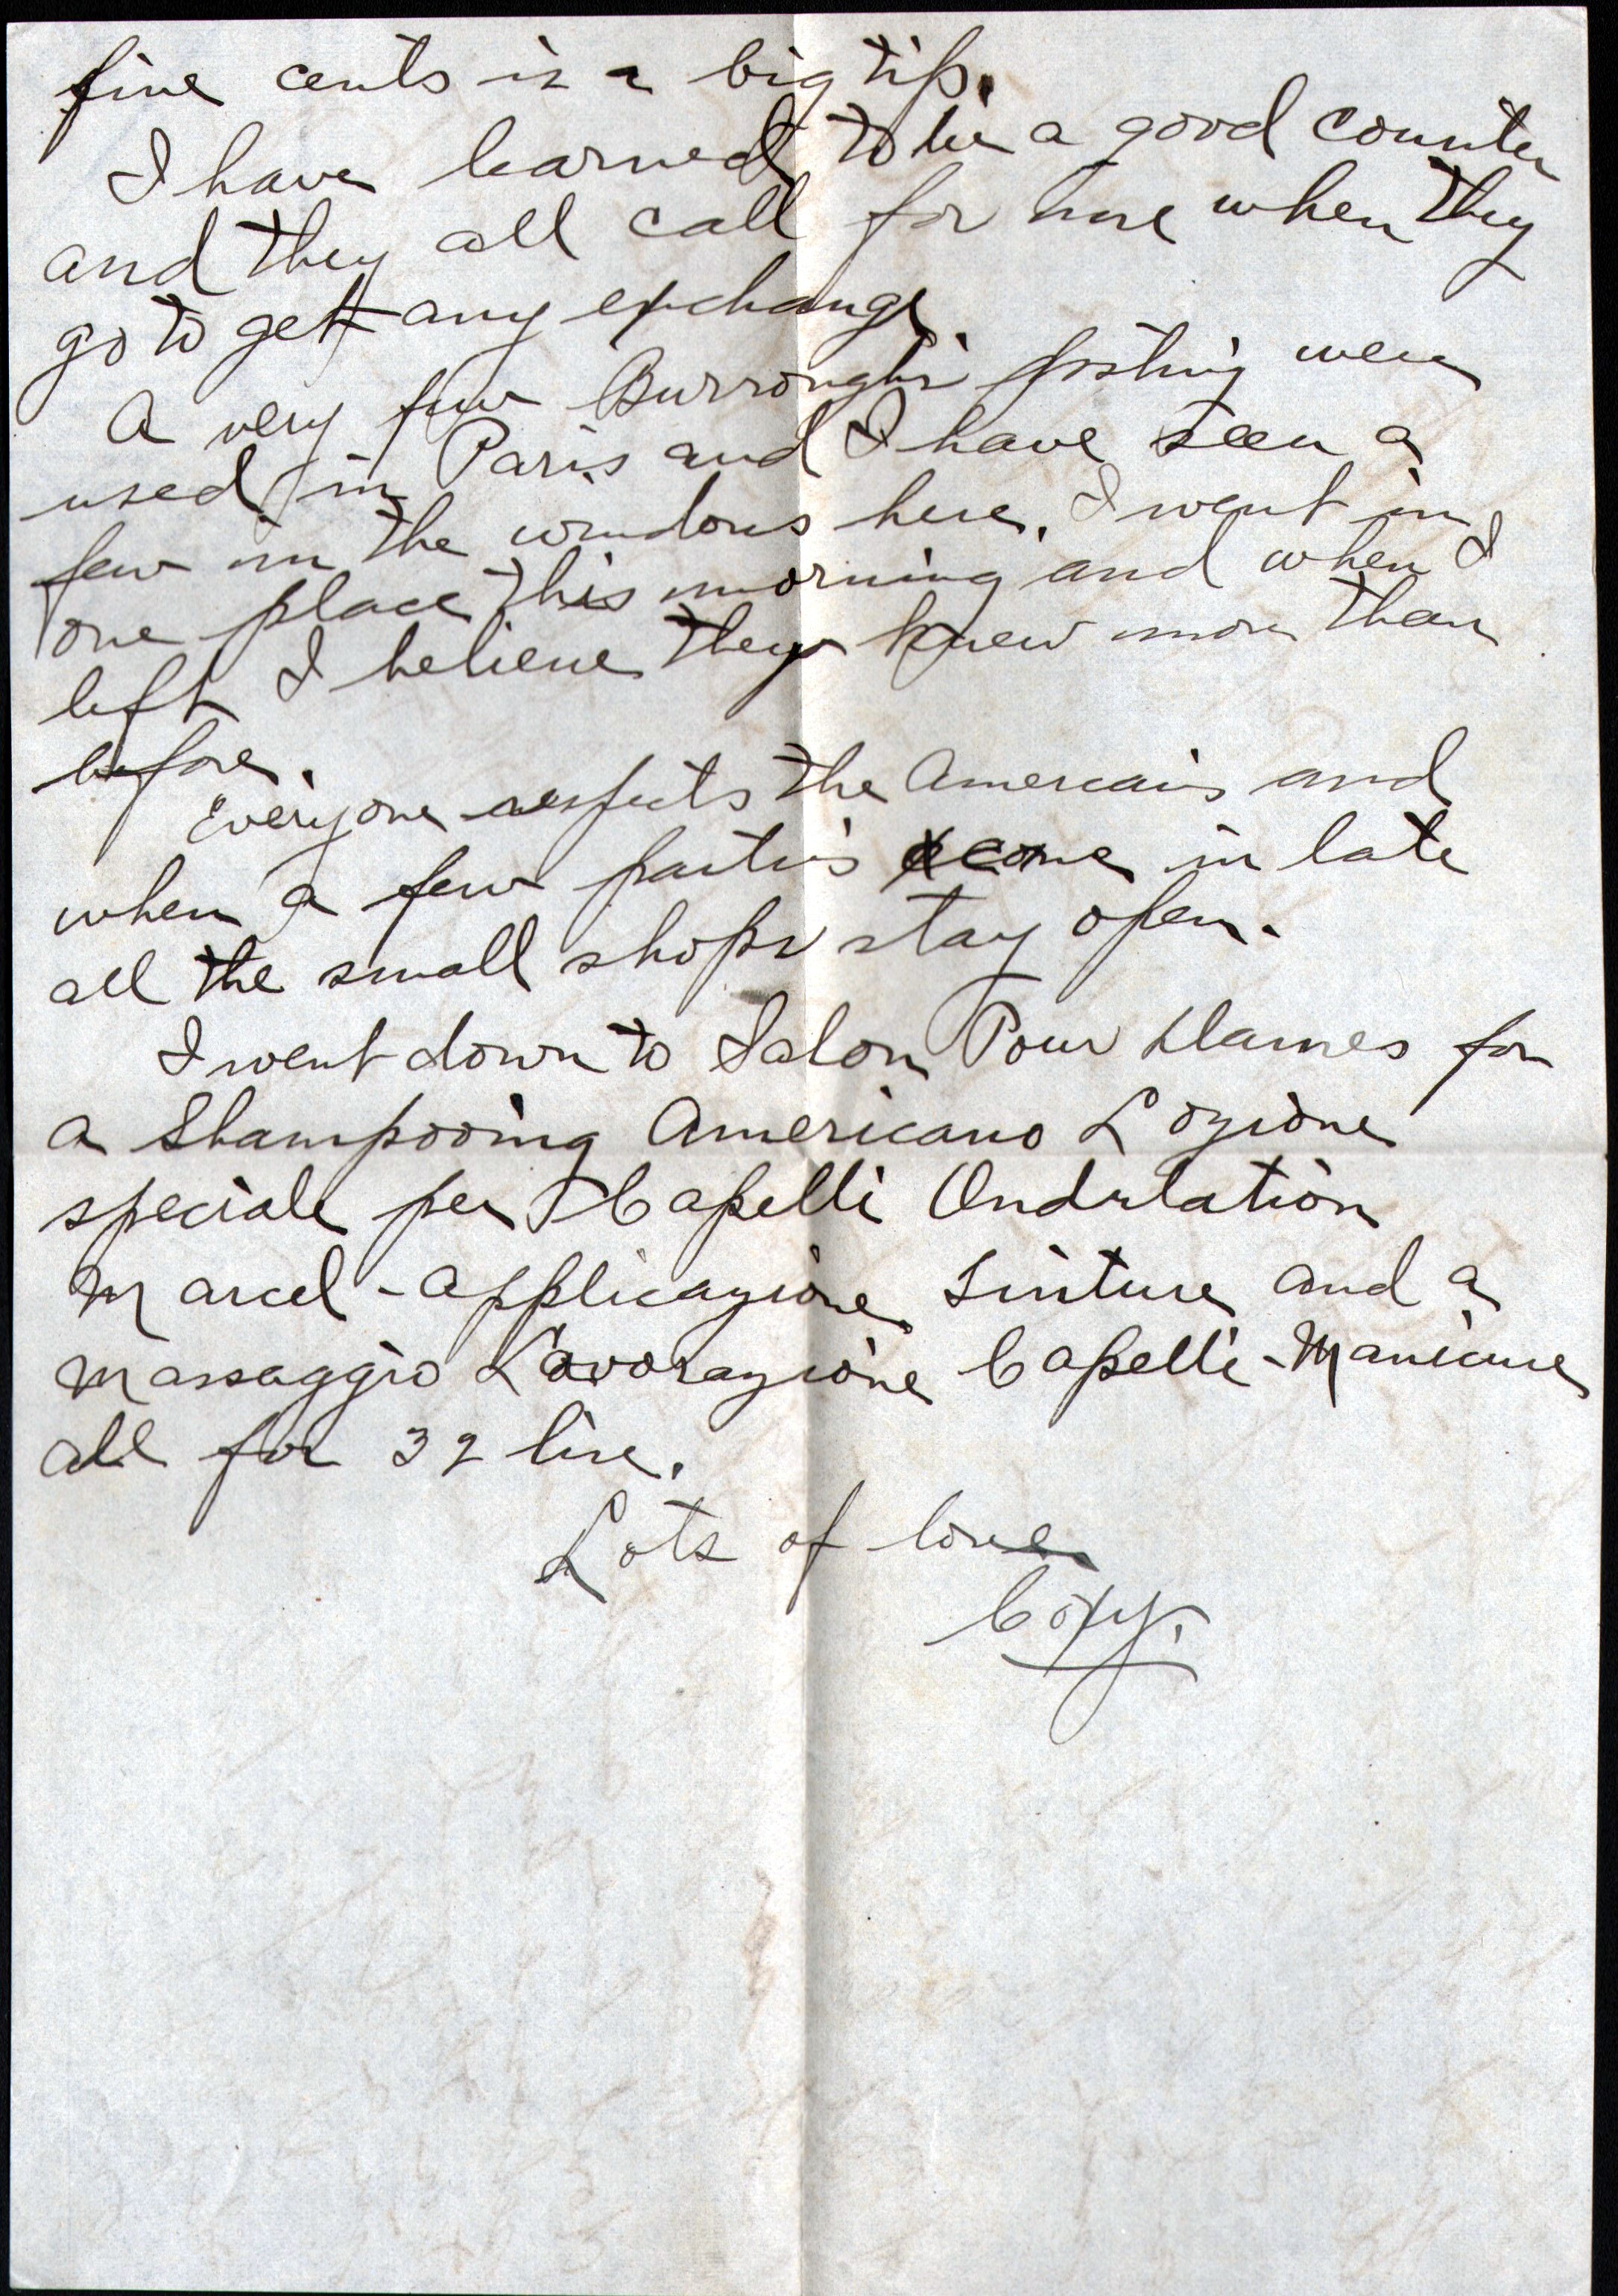 five cents is a big tip.
I have learned to be a good counter
and they all call for me when they
go to get any exchange.
A very few Burroughs posting were
used in Paris and I have seen a
few in the windows here. I went in
one place this morning and when I
left I believe they knew more than
before.
Everyone respects the Americans and
when a few parties come in late
all the small shops stay open.
I went down to Salon Pour Dames for
a Shampooing Americano Lozione
speciale per Capelli Ondulation
Marcel - Applicazione Tinture and a
Massaggio Lavorazione Capelli - Manicure
all for 32 lire.
Lots of love
Coxy.